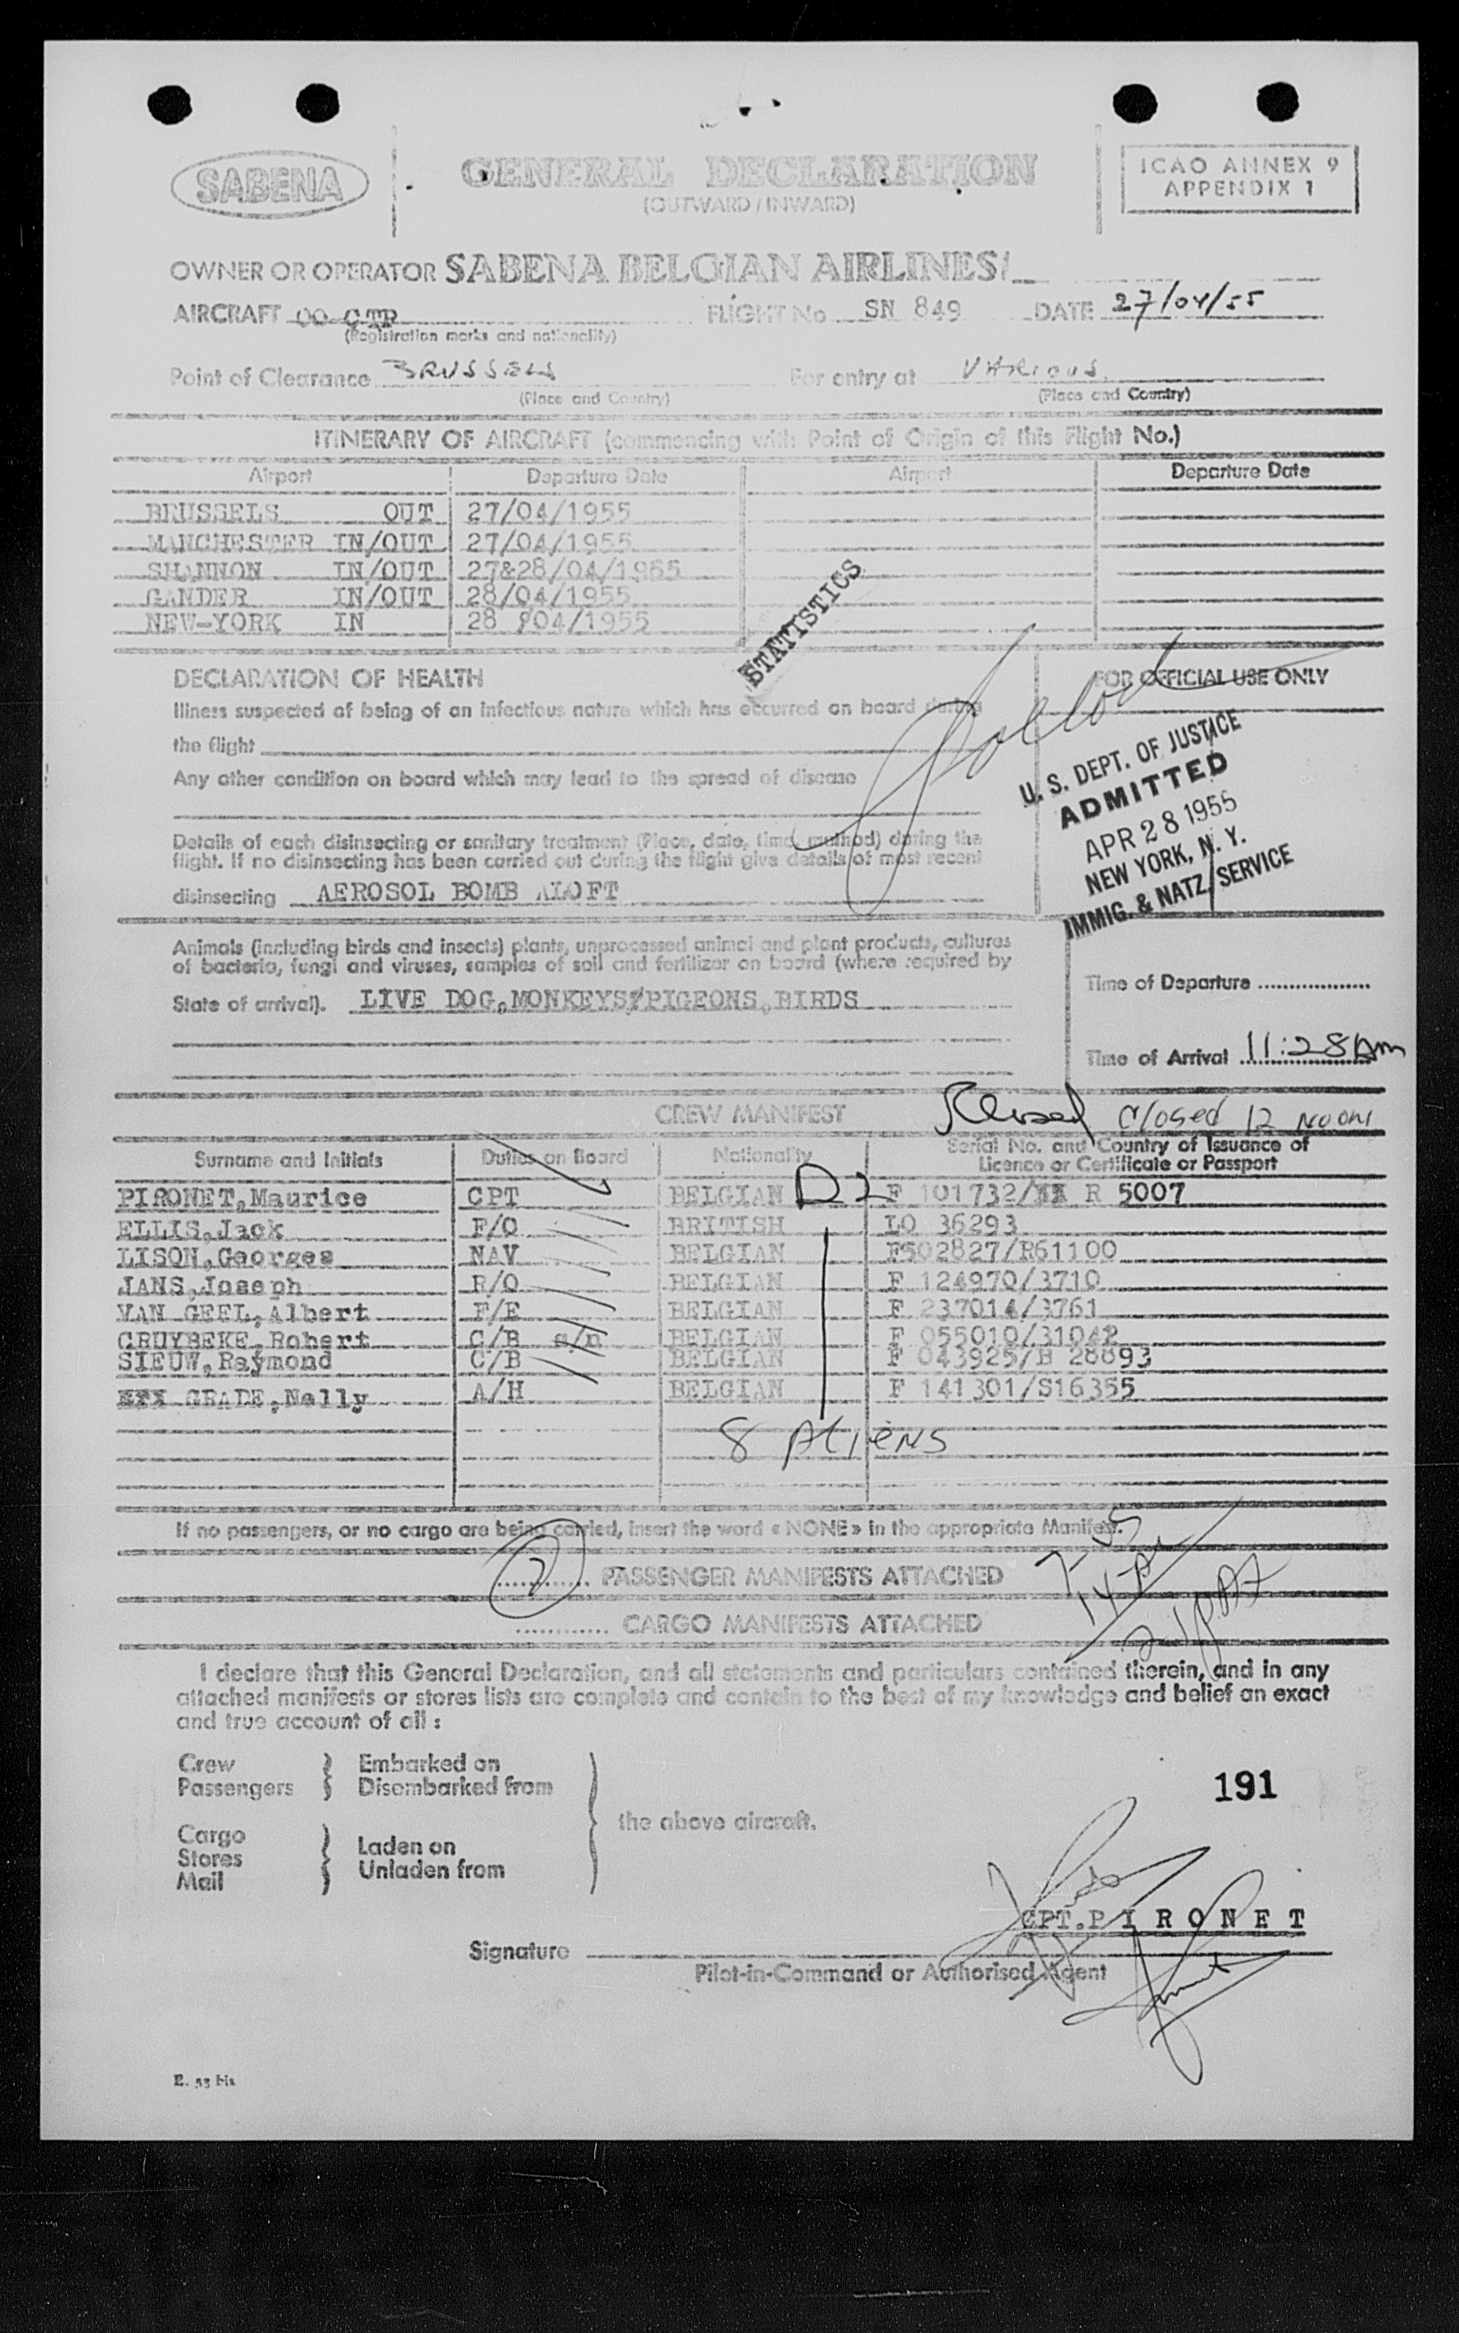 SABENA
GENERAL DECLARATION
(OUTWARD / INWARD)
ICAO ANNEX 9
APPENDIX 1
OWNER OR OPERATOR SABENA BELGIAN AIRLINES
AIRCRAFT OO-CTR FLIGHT No SN 849 DATE 27/04/55
(Registration marks and nationality)
Point of Clearance BRUSSELS For entry at VARIOUS
(Place and Country) (Place and Country)
ITINERARY OF AIRCRAFT (commencing with Point of Origin of this Flight No.)
Airport Departure Date Airport Departure Date
BRUSSELS OUT 27/04/1955
MANCHESTER IN/OUT 27/04/1955
SHANNON IN/OUT 27&28/04/1955
GANDER IN/OUT 28/04/1955
NEW-YORK IN 28/04/1955
STATISTICS
DECLARATION OF HEALTH
FOR OFFICIAL USE ONLY
Illness suspected of being of an infectious nature which has occurred on board during
the flight
Any other condition on board which may lead to the spread of disease
U. S. DEPT. OF JUSTICE
ADMITTED
APR 28 1955
NEW YORK, N. Y.
IMMIG. & NATZ. SERVICE
Details of each disinsecting or sanitary treatment (Place, date, time, method) during the
flight. If no disinsecting has been carried out during the flight give details of most recent
disinsecting AEROSOL BOMB ALOFT
Animals (including birds and insects) plants, unprocessed animal and plant products, cultures
of bacteria, fungi and viruses, samples of soil and fertilizer on board (where required by
State of arrival). LIVE DOG,MONKEYS,PIGEONS,BIRDS
Time of Departure
Time of Arrival 11:28 Am
CREW MANIFEST Closed 12 Noon
Surname and Initials Duties on Board Nationality Serial No. and Country of Issuance of
Licence or Certificate or Passport
PIRONET,Maurice CPT BELGIAN D2 F 101732/XX R 5007
ELLIS,Jack F/O BRITISH LO 36293
LISON,Georges NAV BELGIAN F502827/R61100
JANS,Joseph R/O BELGIAN F 124970/3710
VAN GEEL,Albert F/E BELGIAN F 237014/3761
CRUYBEKE,Robert C/B s/n BELGIAN F 055010/31042
SIEUW,Raymond C/B BELGIAN F 043925/B 28893
GRADE,Nelly A/H BELGIAN F 141301/S16355
8 Aliens
If no passengers, or no cargo are being carried, insert the word « NONE » in the appropriate Manifest.
PASSENGER MANIFESTS ATTACHED
CARGO MANIFESTS ATTACHED
I declare that this General Declaration, and all statements and particulars contained therein, and in any
attached manifests or stores lists are complete and contain to the best of my knowledge and belief an exact
and true account of all :
Crew Embarked on
Passengers Disembarked from
the above aircraft.
Cargo
Stores
Mail
Laden on
Unladen from
191
CPT.P I R O N E T
Signature
Pilot-in-Command or Authorised Agent
E. 53 bis